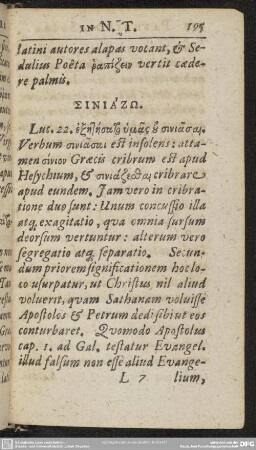 IN N. T.
latini autores alapas vocant, & Se-
dulius Poëta ῥαπίζειν vertit cæde-
re palmis.
ΣΙΝΙΑΖΩ.
Luc. 22. ἐξῃτήσατο ὑμᾶς σινιάσαι.
Verbum σινιάσαι est insolens: atta-
men σίνιον Græcis cribrum est apud
Hesychium, & σινιάζεσθαι cribrare
apud eundem. Jam vero in cribra-
tione duo sunt: Unum concussio illa
atq; exagitatio, qua omnia sursum
deorsum vertuntur: alterum vero
segregatio atq; separatio. Secun-
dum priorem significationem hoc lo-
co usurpatur, ut Christus nil aliud
voluerit, quam Sathanam voluisse
Apostolos & Petrum dedisibiut eos
conturbaret. Quomodo Apostolus
cap. 1. ad Gal. testatur Evangel.
illud falsum non esse aliud Evange-
L 7 lium,